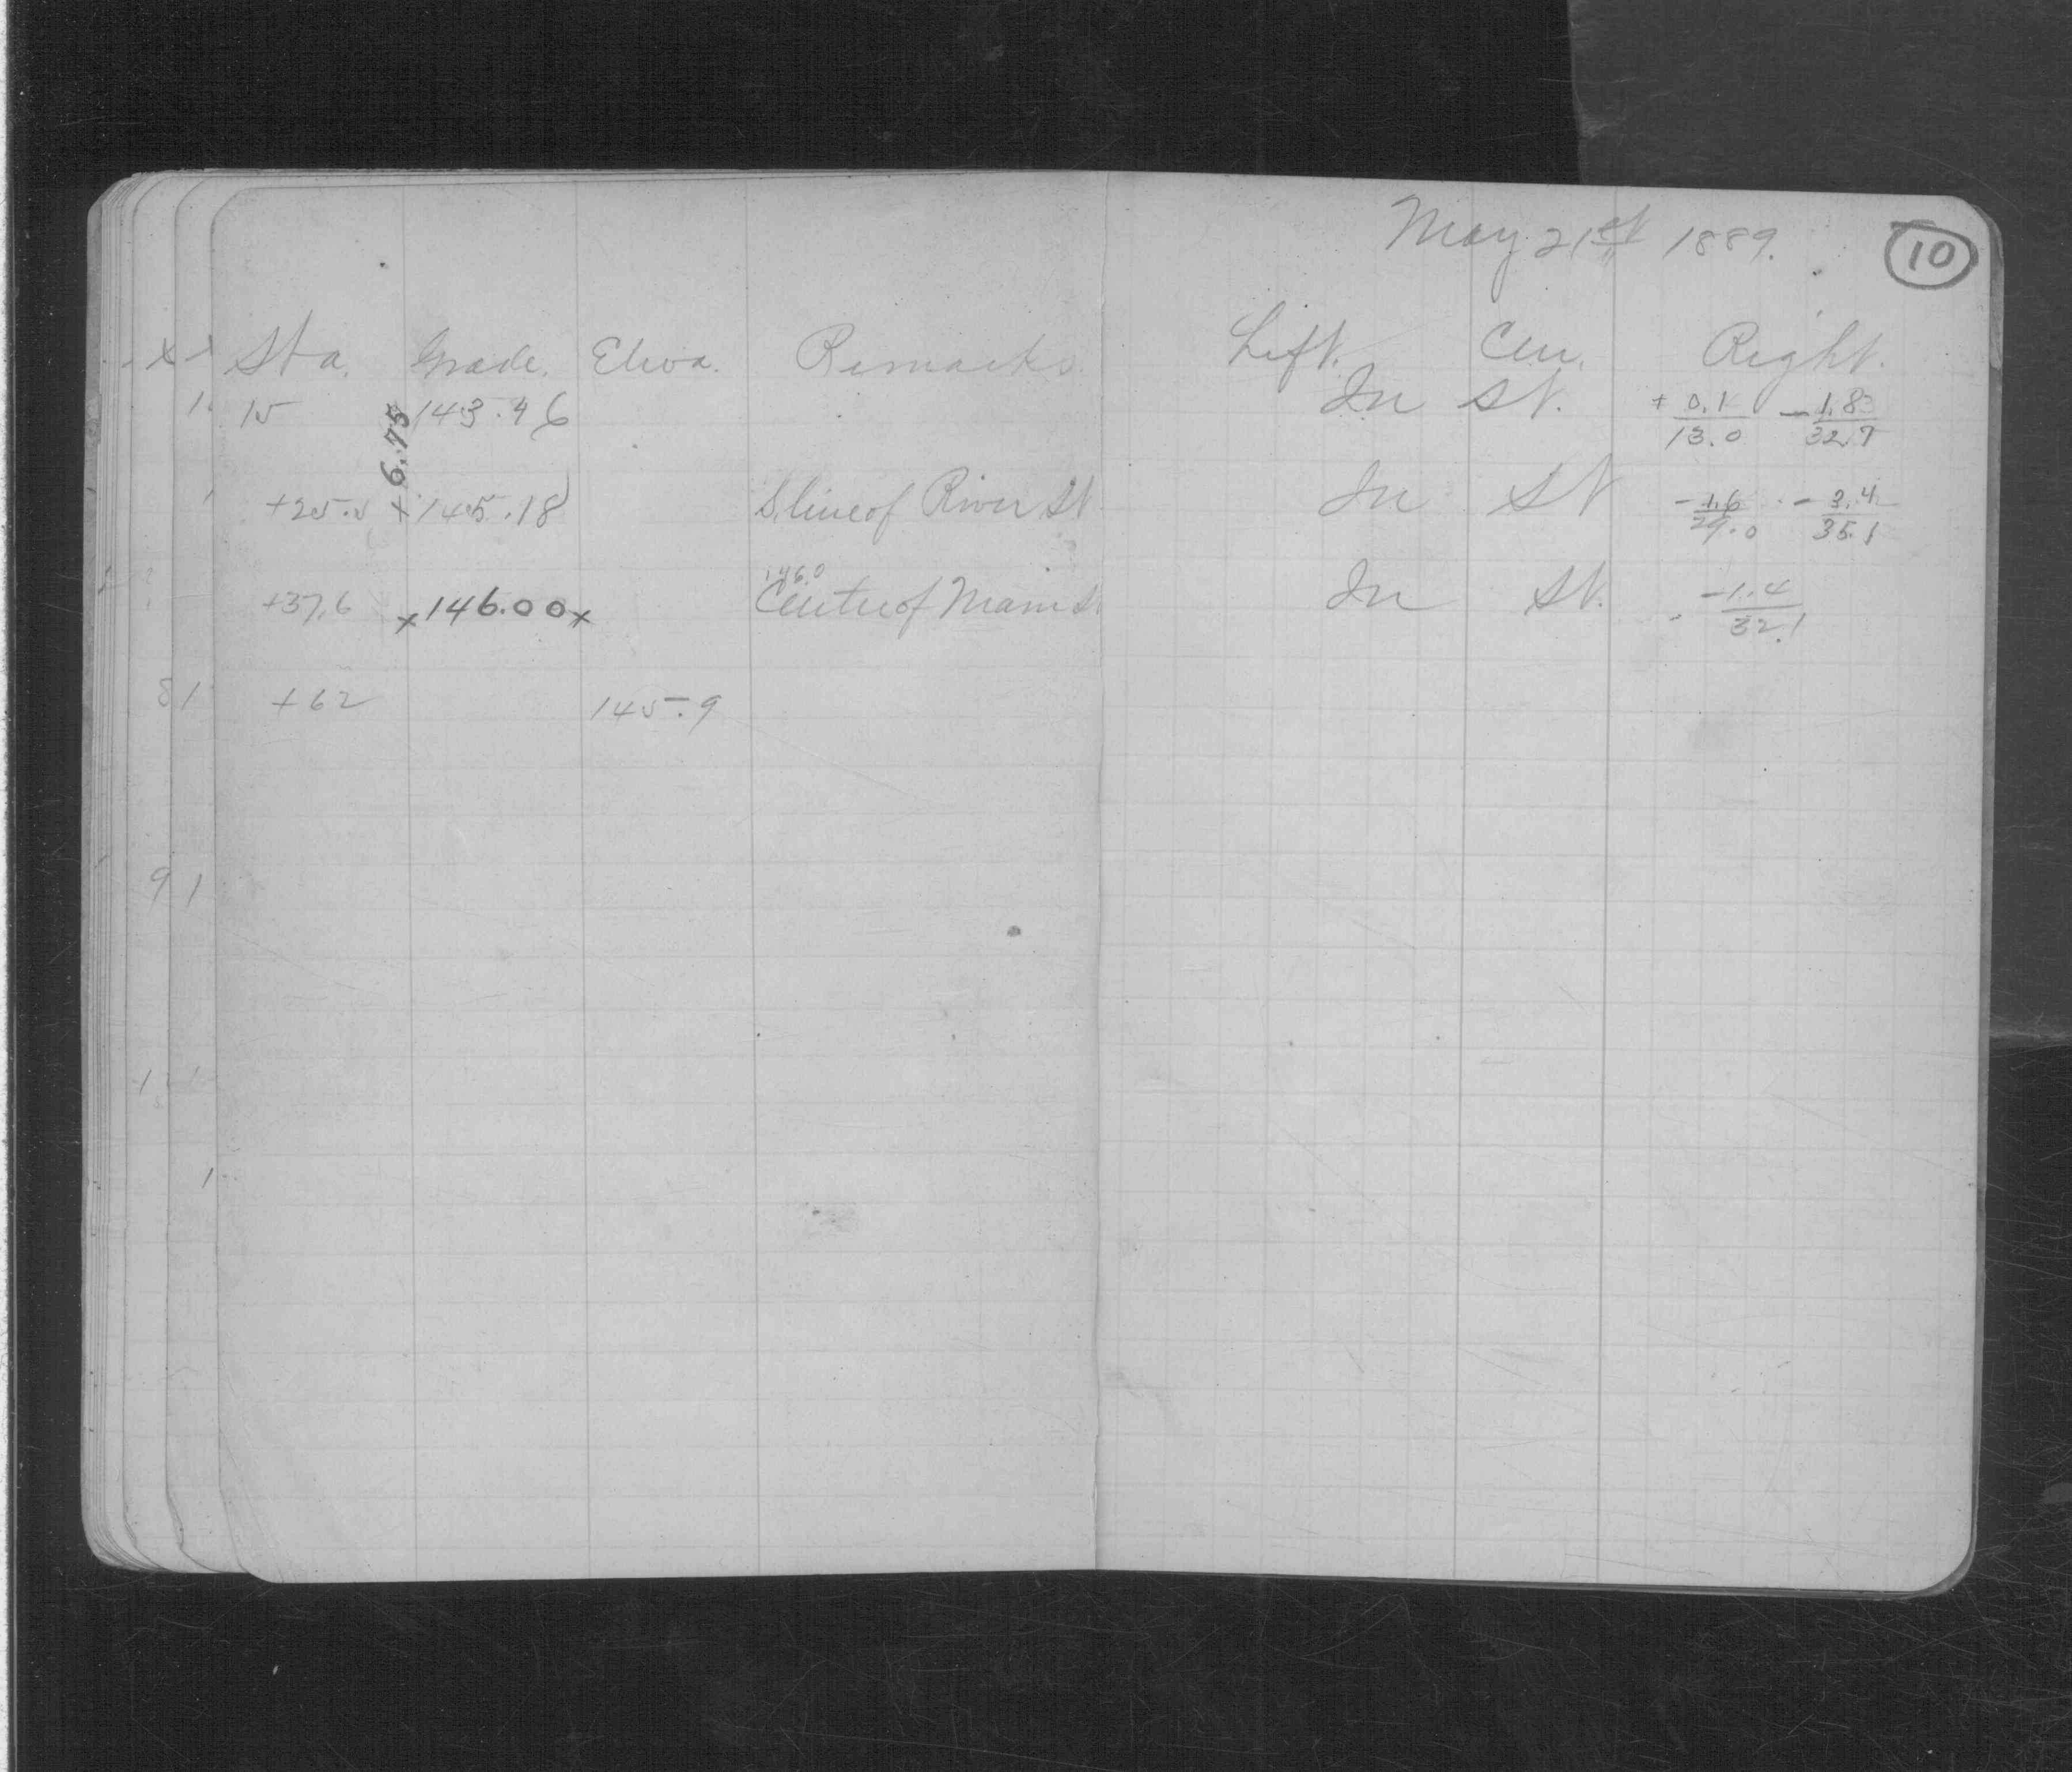 May 21st 1889. 10
Sta. Grade. Eleva. Remarks. Left. Cen. Right.
15 143.46 In St. +0.1/13.0 -1.8/32.7
+6.75
+25.5 145.18 S. line of River St. In St -1.6/29.0 -3.4/35.1
146.0
+37.6 x146.00x Center of Main St. In St. -1.4/32.1
+62 145.9